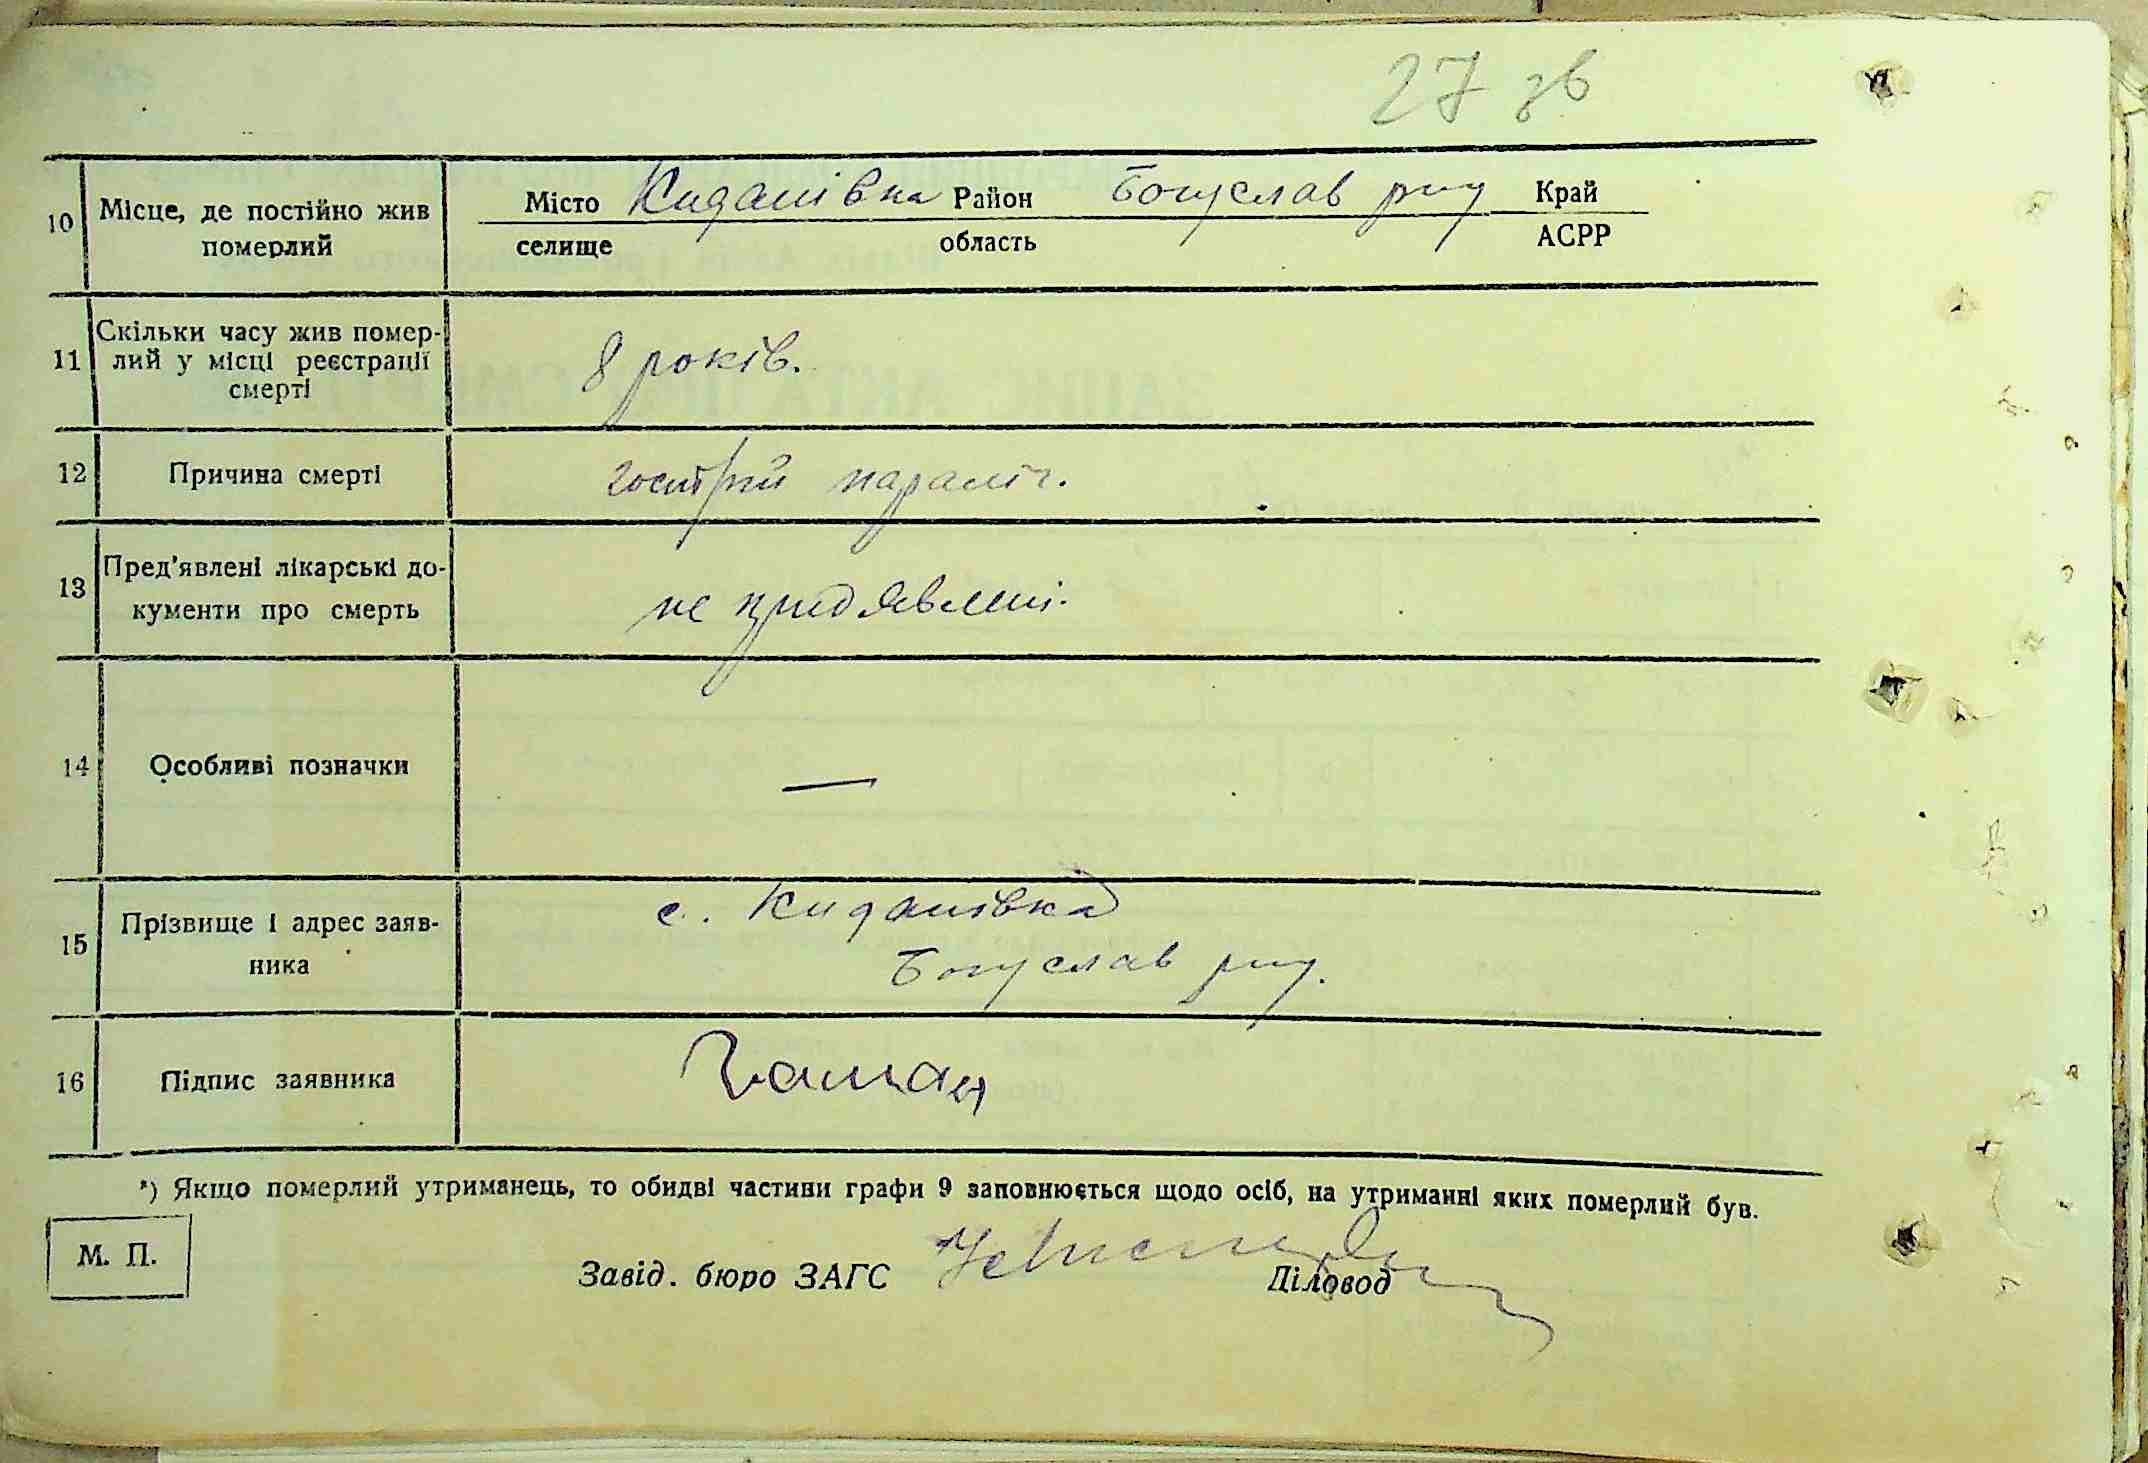 27 зв
10 Місце, де постійно жив померлий Місто Киданівка Район Богуслав рну Край
селище область АСРР
11 Скільки часу жив помер-
лий у місці реєстрації
смерті 8 років.
12 Причина смерті гострий параліч.
13 Пред'явлені лікарські до-
кументи про смерть не предявлені.
14 Особливі позначки —
15 Прізвище і адрес заяв-
ника с. Киданівка
Богуслав рну.
16 Підпис заявника
*) Якщо померлий утриманець, то обидві частини графи 9 заповнюється щодо осіб, на утриманні яких померлий був.
М. П.
Завід. бюро ЗАГС Діловод